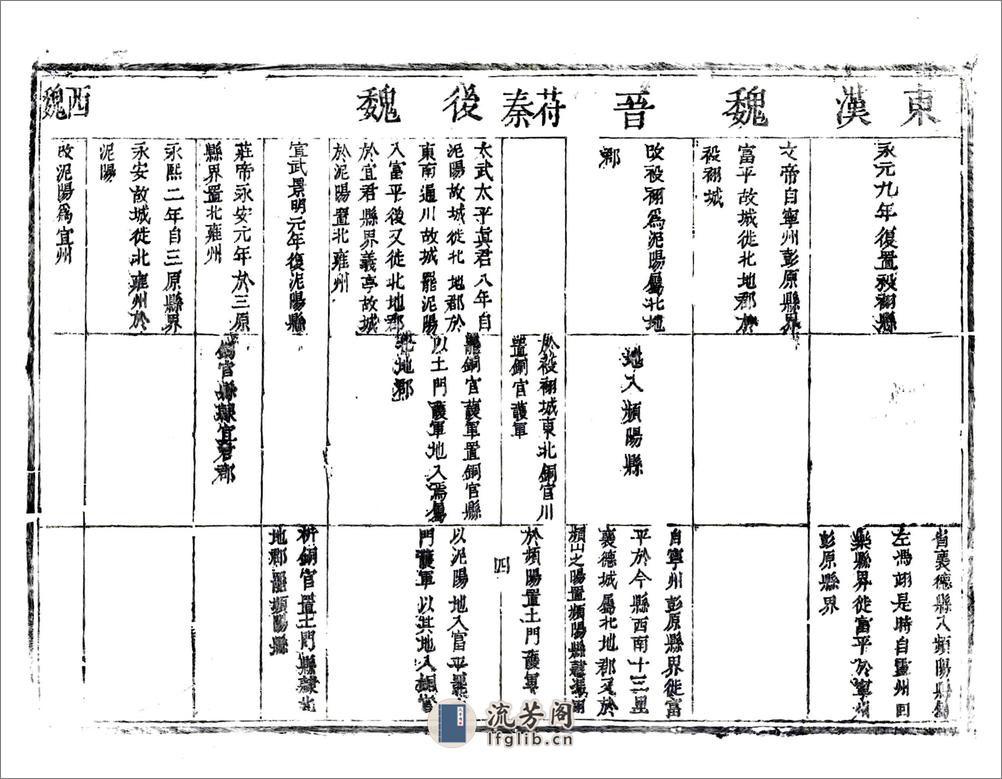 東漢
魏
晉
苻秦
後魏
西魏
永元九年復置祋祤縣
文帝自寧州彭原縣界
富平故城徙北地郡於
祋祤城
改祋祤爲泥陽屬北地
郡
太武太平眞君八年自
泥陽故城徙北地郡於
東南通川故城罷泥陽
入富平後又徙北地郡
於宜君縣界義亭故城
於泥陽置北雍州
宣武景明元年復泥陽縣
莊帝永安元年於三原
縣界置北雍州
永熙二年自三原縣界
永安故城徙北雍州於
泥陽
改泥陽爲宜州
地入頻陽縣
於祋祤城東北銅官川
置銅官護軍
罷銅官護軍置銅官縣
以土門護軍地入焉屬
北地郡
銅官縣隸宜君郡
省襄德縣入頻陽縣
左馮翊是時自靈州回
樂縣界徙富平於寧州
彭原縣界
自寧州彭原縣界徙富
平於今縣西南十三里
襄德城屬北地郡又於
頻山之陽置頻陽縣隸馮翊
於頻陽置土門護軍
四
以泥陽地入富平罷
門護軍以其地入銅官
析銅官置土門縣隸北
地郡罷頻陽縣
流芳阁
lfglib.cn